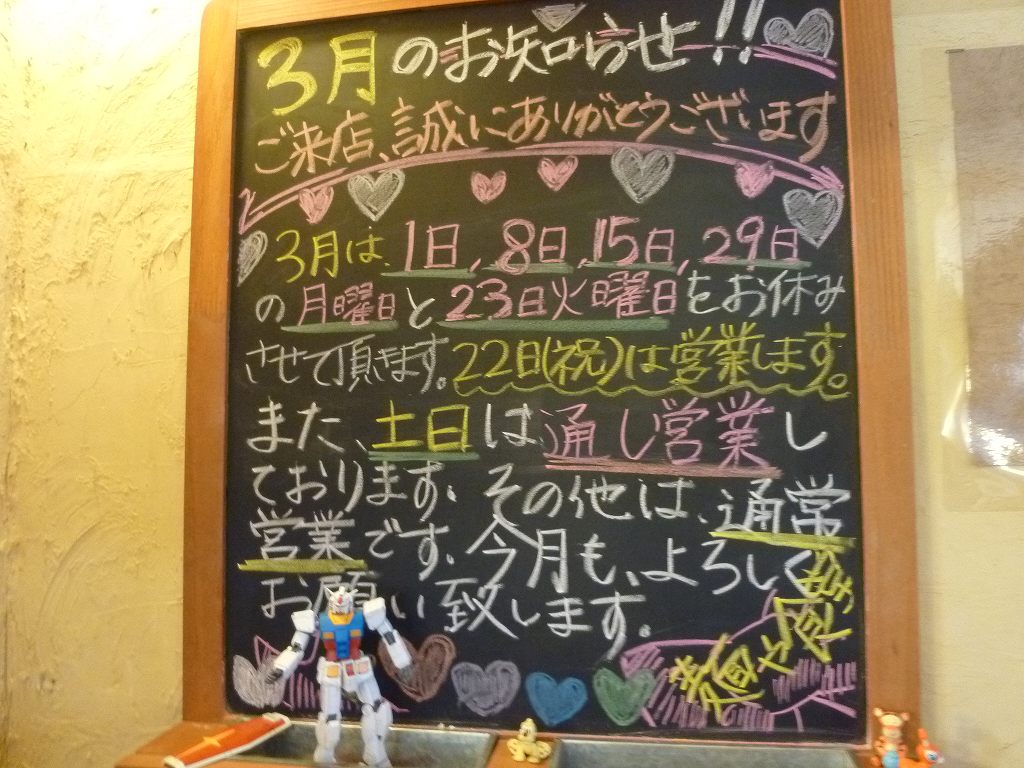 3月のお知らせ!!
ご来店、誠にありがとうございます
3月は、1日、8日、15日、29日
の月曜日と23日火曜日をお休み
させて頂きます。22日(祝)は営業します。
また、土日は通し営業し
ております。その他は、通常
営業です。今月も、よろしく
お願い致します。